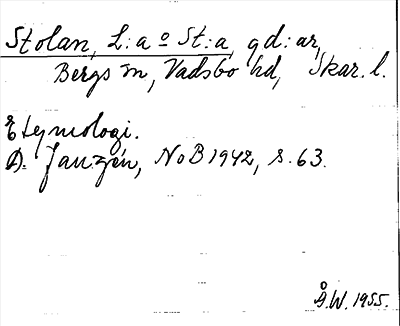 Stolan, L:a o St:a, gd:ar,
Bergs sn, Vadsbo hd, Skar. l.
Etymologi.
A. Janzén, NoB 1942, s. 63.
Å.W. 1955.